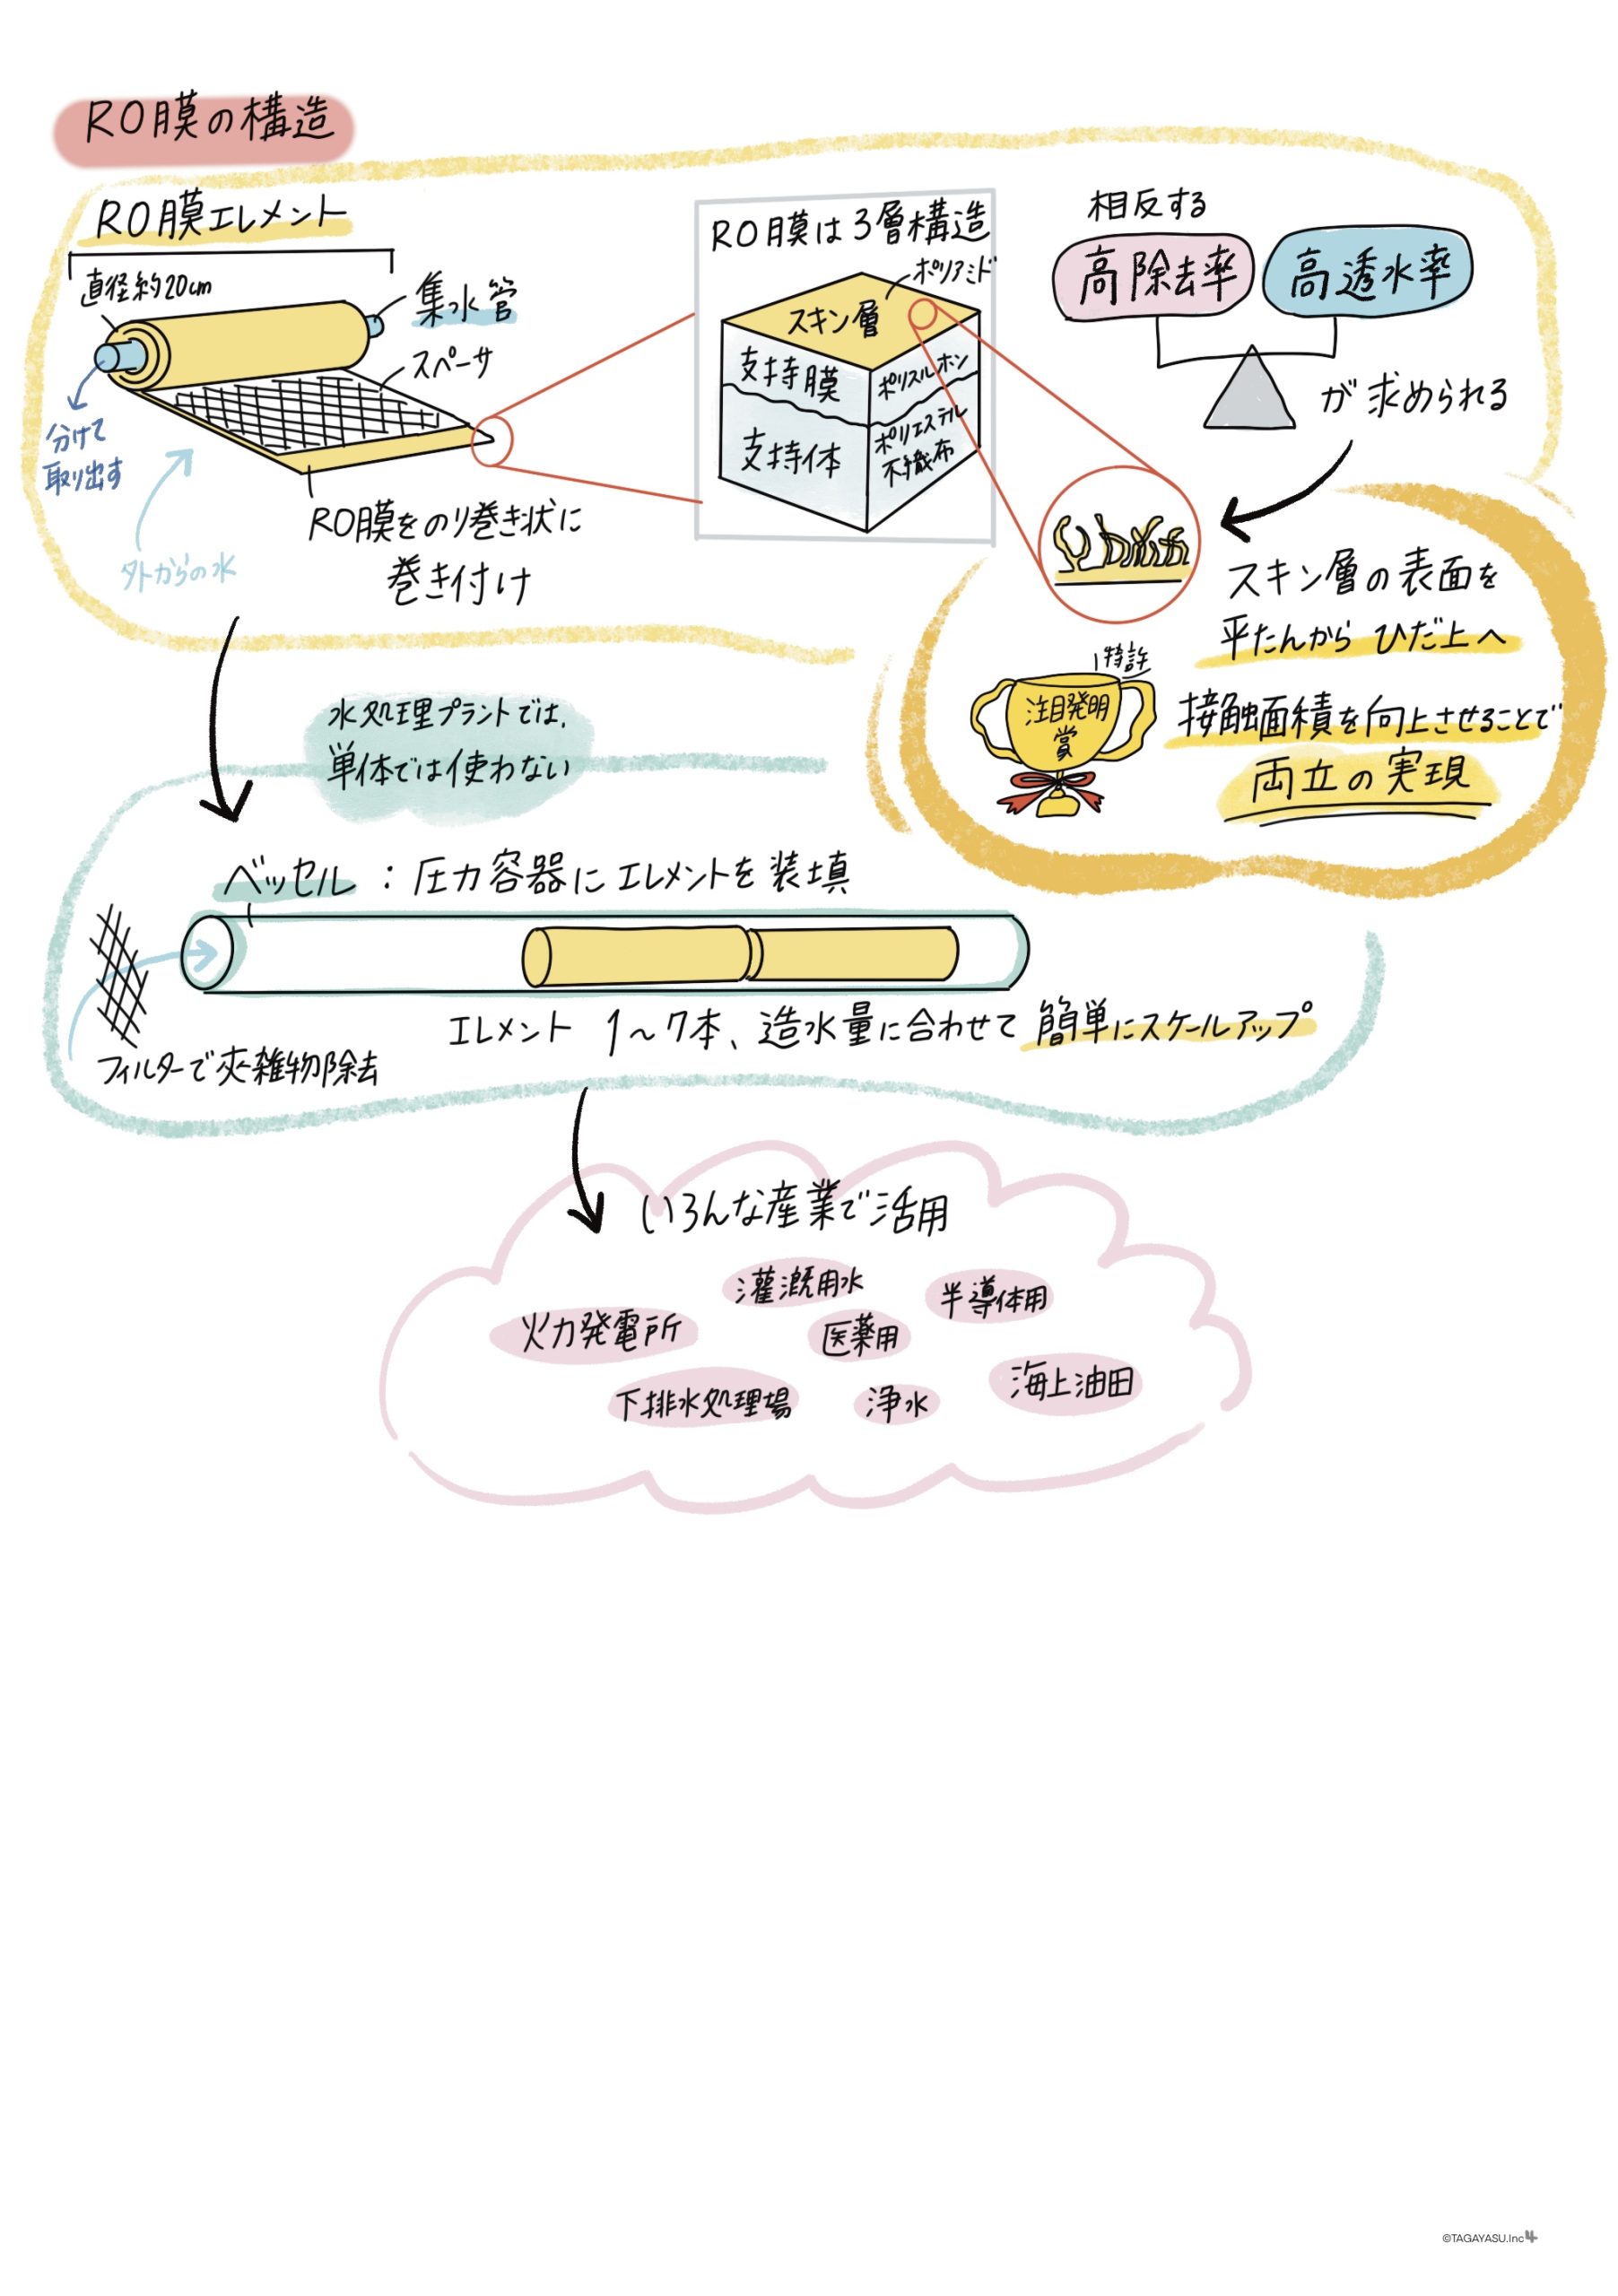 RO膜の構造
RO膜エレメント
直径約20cm
集水管
スペーサ
分けて
取り出す
外からの水
RO膜をのり巻き状に
巻き付け
RO膜は3層構造
ポリアミド
スキン層
支持膜
ポリスルホン
支持体
ポリエステル
不織布
相反する
高除去率
高透水率
が求められる
スキン層の表面を
平たんから ひだ上へ
特許
注目発明
賞
接触面積を向上させることで
両立の実現
水処理プラントでは、
単体では使わない
ベッセル:圧力容器にエレメントを装填
フィルターで夾雑物除去
エレメント 1~7本、造水量に合わせて 簡単にスケールアップ
いろんな産業で活用
灌漑用水
半導体用
火力発電所
医薬用
海上油田
下排水処理場
浄水
©TAGAYASU.Inc